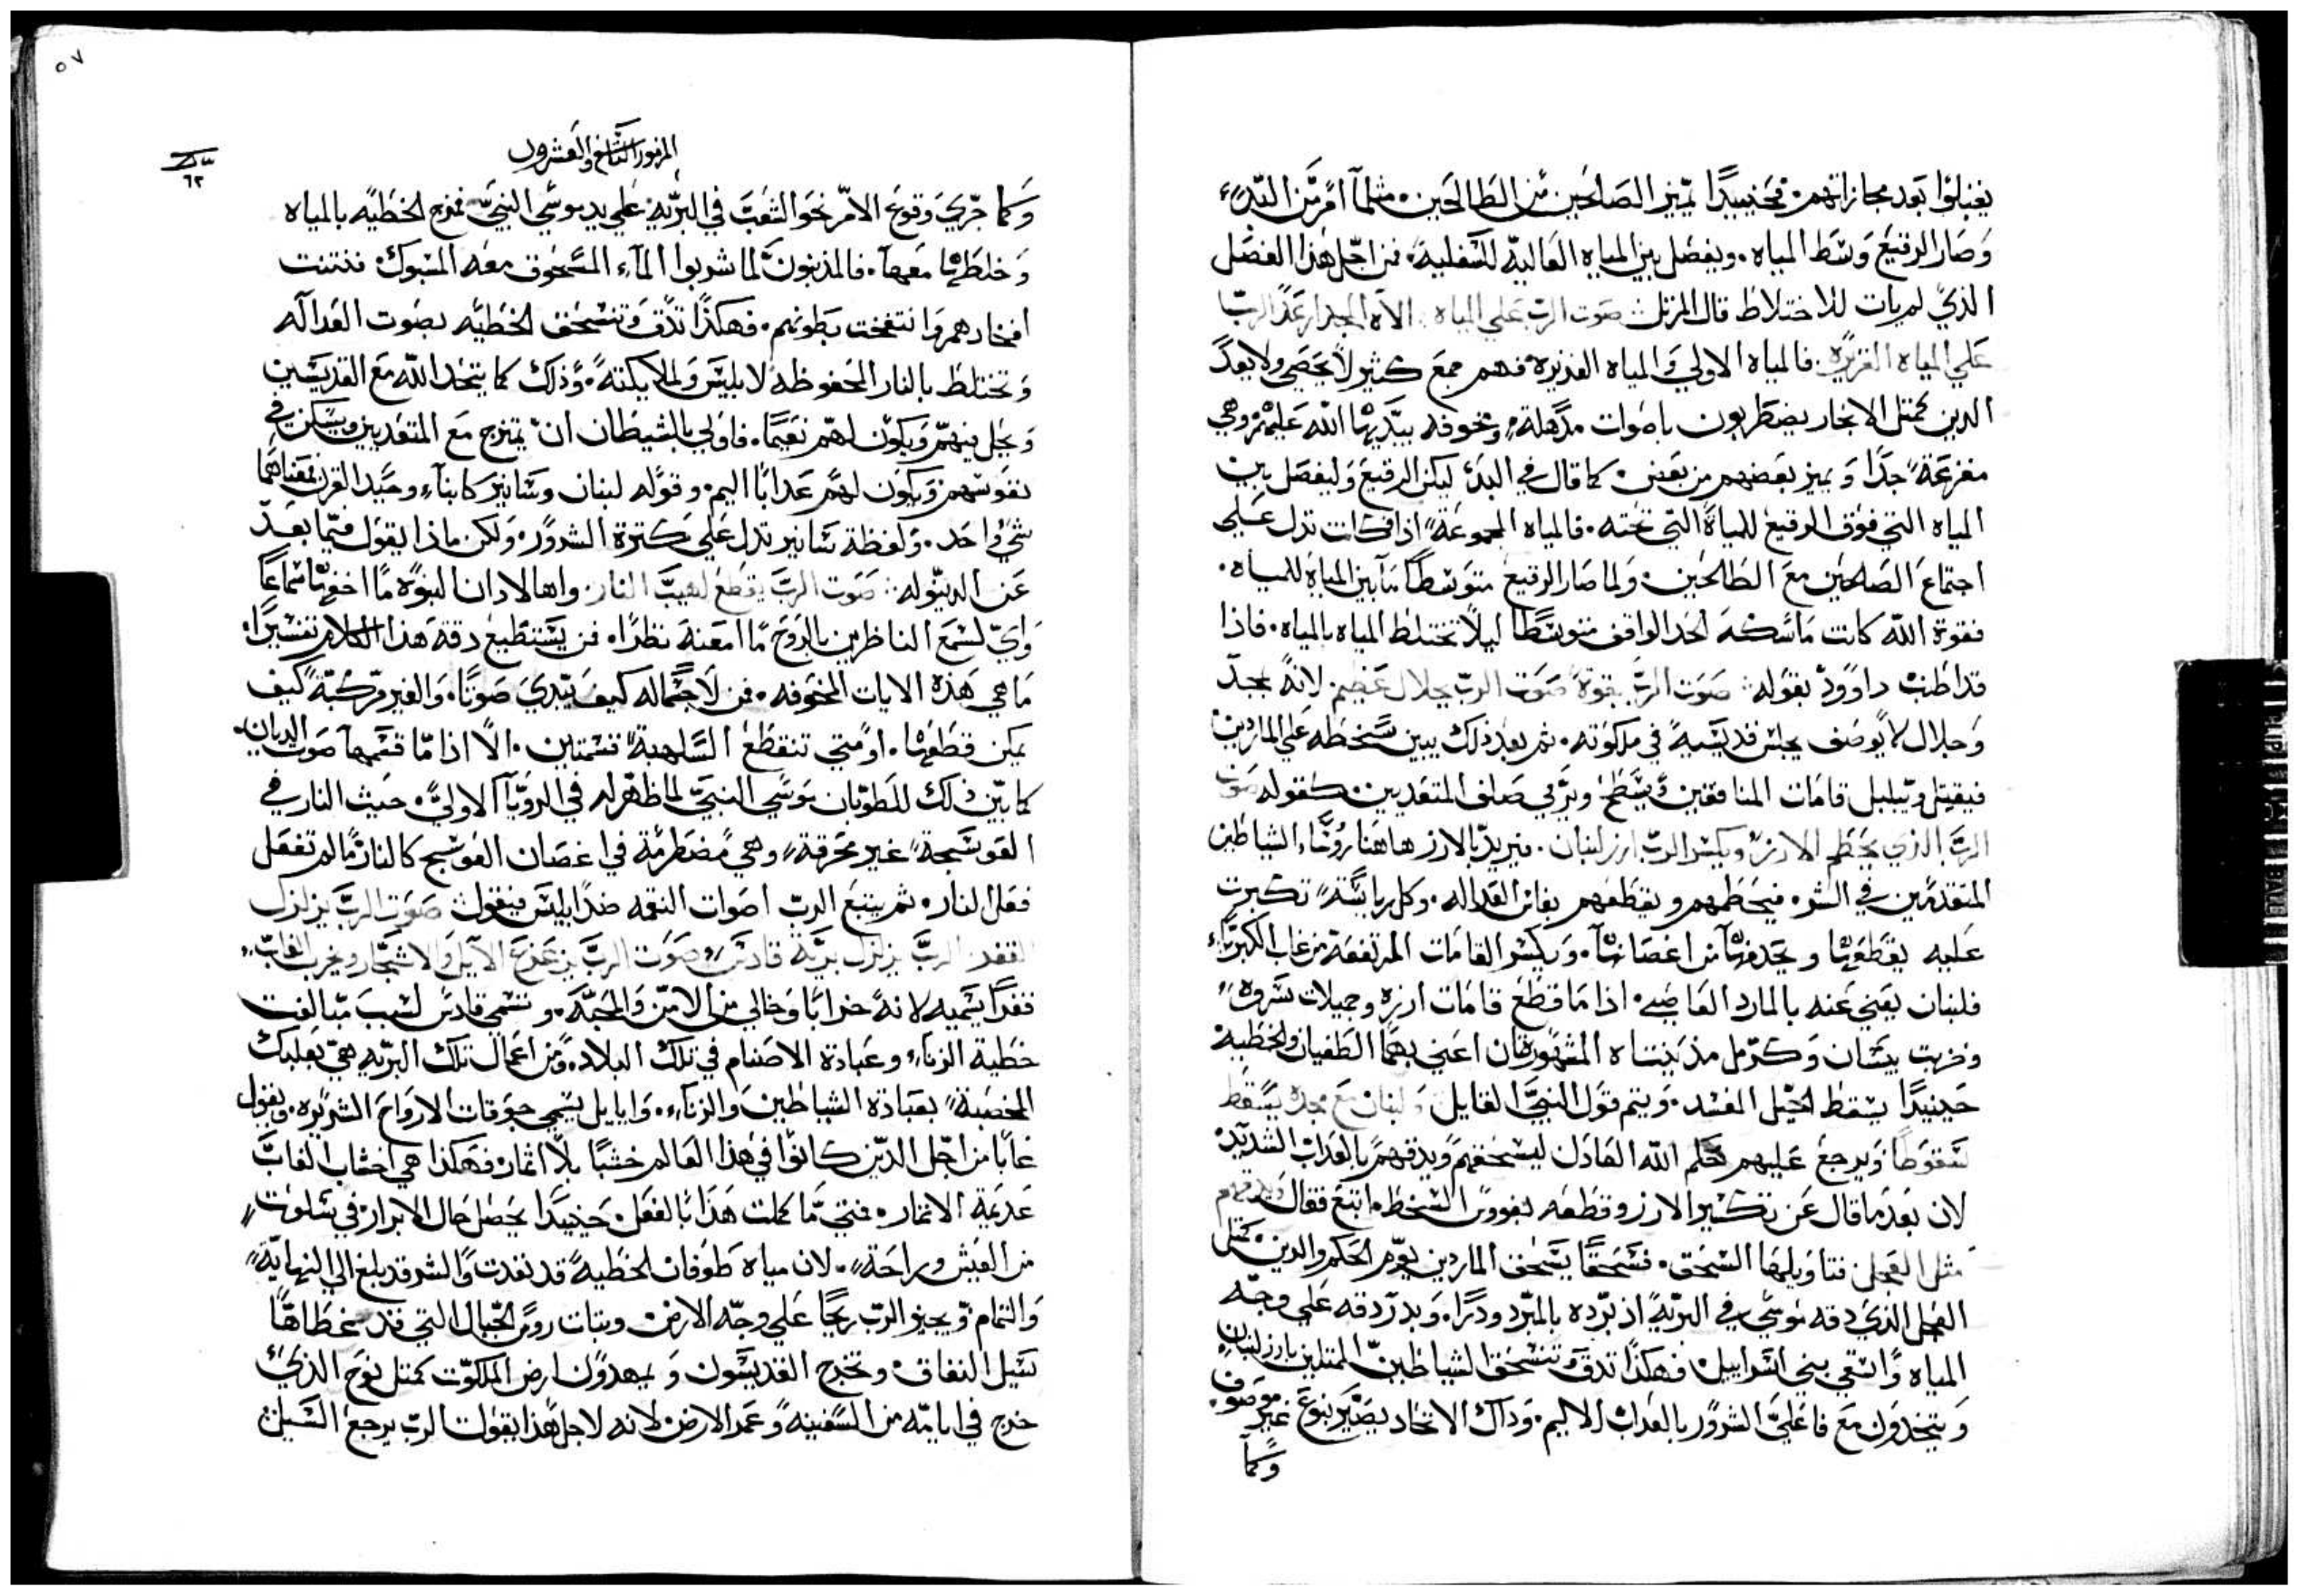 يقبلوا بعد مجازاتهم. فحينيدًا تميز الصالحين من الطالحين. مثلما افرزت البدء
وصار الرقيع وسط المياه. ويفصل بين المياه العالية للسفلية. فمن اجل هذا الفصل
الذي لم يات للاختلاط قال المرتل صوت الرب علي المياه. الاه المجد ارعد الرب
علي المياه الغزيره. فالمياه الاولي والمياه الغزيره فهم جمع كثير لا يحصي ولا يعد
الدين كمتل الابحار يضطربون باصوات مذهلة، ومخوفه يبديها الله عليهم وهي
مفزعة جدًا ويميز بعضهم من بعض كما قال في البدء ليكن الرقيع وليفصل بين
المياه التي فوق الرقيع للمياة التي تحته. فالمياه المجموعة اذا كانت تدل علي
اجتماع الصالحين مع الطالحين. ولما صار الرقيع متوسطًا ما بين المياة للمياه.
فقوة الله كانت ماسكه الحد الواقف متوسطًا ليلا تختلط المياه بالمياه. فاذا
قد اطنب داوود بقوله صوت الرب بقوة صوت الرب بجلال عظيم. لانه بمجد
وجلال لا يوصف يجلس قديسيه في ملكوته. ثم بعد ذلك يبين سخطه علي الماردين
فيقبل ويبلبل قامات المنافقين ويسطح ويرمي صلف المتعديين كقوله صوت
الرب الذي يحطم الارز ويكسر الرب ارز لبنان. فيريد بالارز هاهنا روسا، الشياطين
المتقدمين في الشر. فيحطمهم ويقطعهم بفاس العداله. وكل رياسة تكبرت
عليه يقطعها ويحدفها من اغصانها. ويكسر القامات المرتفعة من غاب الكبرياء
فلبنان يعني عنه بالمارد العاصي. اذا ما قطع قامات ارزه وجميلات سروه
وخربت بيسان وكرمل مدينتاه المشهورتان اعني بهما الطغيان والخطيه
حينيدًا يسقط الجبل المفسد. ويتم قول النبي القايل ولبنان مع مجده يسقط
سقوطًا ويرجع عليهم حكم الله العادل ليسحقهم ويدقهم بالعداب الشديد
لان بعد ما قال عن تكسير الارز وقطعه بفووس السخط. اتبع فقال ويدقهم
مثل العجل فتاويلها السحق. فسحقًا يسحق الماردين يوم الحكم والدين. كمثل
العجل الذي دقه موسي في البرية اذ برده بالمبرد ودرا. وبدر دقه علي وجه
المياه واسقي بني اسراييل. فهكدا تدق وتنسحق الشياطين الممتلين بارز لبنان
ويتحدون مع فاعلي الشرور بالعداب الاليم. وداك الاتحاد يصير بنوع غير موصوف.
وكما
٥٧
المزمور الثامن والعشرون
٦٢
وكما جري وقوع الامر نحو الشعب في البريه علي يد موسي النبي فمزج الخطيه بالمياه
وخلطها معها. فالمذنبون لما شربوا الماء المسحوق معه المسبوك. فنتنت
افخادهم وانتفخت بطونهم. فهكذا تدق وتنسحق الخطيه بصوت العداله
وتختلط بالنار المحفوظه لابليس ولملايكته. وذلك كما يتحد الله مع القديسين
ويحل فيهم ويكون لهم نعيمًا. فاولي بالشيطان ان يمتزج مع المتعديين ويسكن في
نفوسهم ويكون لهم عدابًا اليم. وقوله لبنان وسانير كابناء وحيد القرن فمعناهما
شي واحد. ولفظة سانير تدل علي كثرة الشرور. ولكن ماذا يقول فيما بعد
عن الدينوله صوت الرب يقطع لهيب النار. واها لادان النبوه ما اخفها سماعًا
واي لسمع الناظرين بالروح ما امعنه نظرًا. فمن يستطيع دقة هذا الكلام تفسيرًا.
ما هي هذه الايات المخوفه. فمن لا جسم له كيف يبدي صوتًا. والغير مركبة كيف
يمكن قطعها. او متي تنقطع السلهبة قسمتين. الا اذا ما قسمها صوت الديان.
كما بين ذلك للطوبان موسي النبي لما ظهر له في الرويا الاولي. حيث النار في
العوسجة غير محرقة، وهي مضطرمة في اغصان العوسج كالنار. ما لم تفعل
فعل النار. ثم يتبع الرب اصوات النقمه ضد ابليس فيقول صوت الرب يزلزل
القفر. الرب يزلزل برية قادس، صوت الرب يزعزع الآيل والاشجار ويخرب الغاب.
قفرًا يسميه لانه خرابًا وخالي من الامن والمحبه. وتسمي قادس لسبب مبالغت
خطية الزناء، وعبادة الاصنام في تلك البلاد. ومن اعمال تلك البريه هي بعلبك
المخصبة بعبادة الشياطين والزناء. وايايل يسمي جوقات الارواح الشريره. ويقول
غابا من اجل الدين كانوا في هذا العالم خشبًا بلا اثمار. فهكذا هي اخشاب الغاب
عديمة الاثمار. فمتي ما كملت هذا بالفعل. حينيدا يحصل حال الابرار في سلوت
من العيش وراحة. لان مياه طوفان الخطيه قد نفدت والشر قد بلغ الي النهاية
والتمام. ويجيز الرب ريحًا علي وجه الارض. وبنات روس الجبال التي قد غطاها
سيل النفاق. وتخرج القديسون ويمهدون ارض الملكوت كمتل نوح الذي
خرج في ايامه من السفينه وعمر الارض. لانه لاجل هذا يقول الرب يرجع السيل